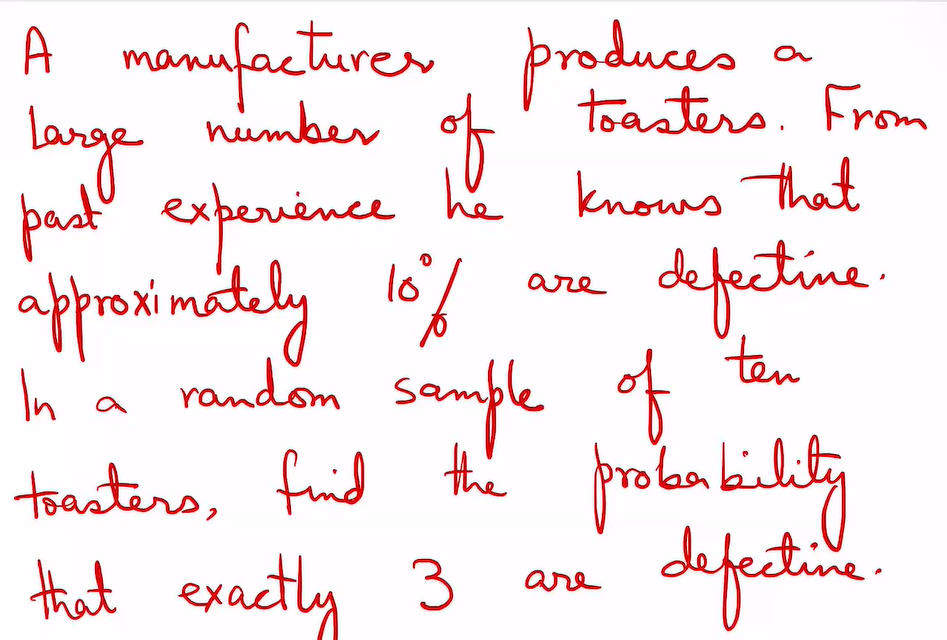 A manufacturer produces a
Large number of toasters. From
past experience he knows that
approximately 10% are defective.
In a random sample of ten
toasters, find the probability
that exactly 3 are defective.